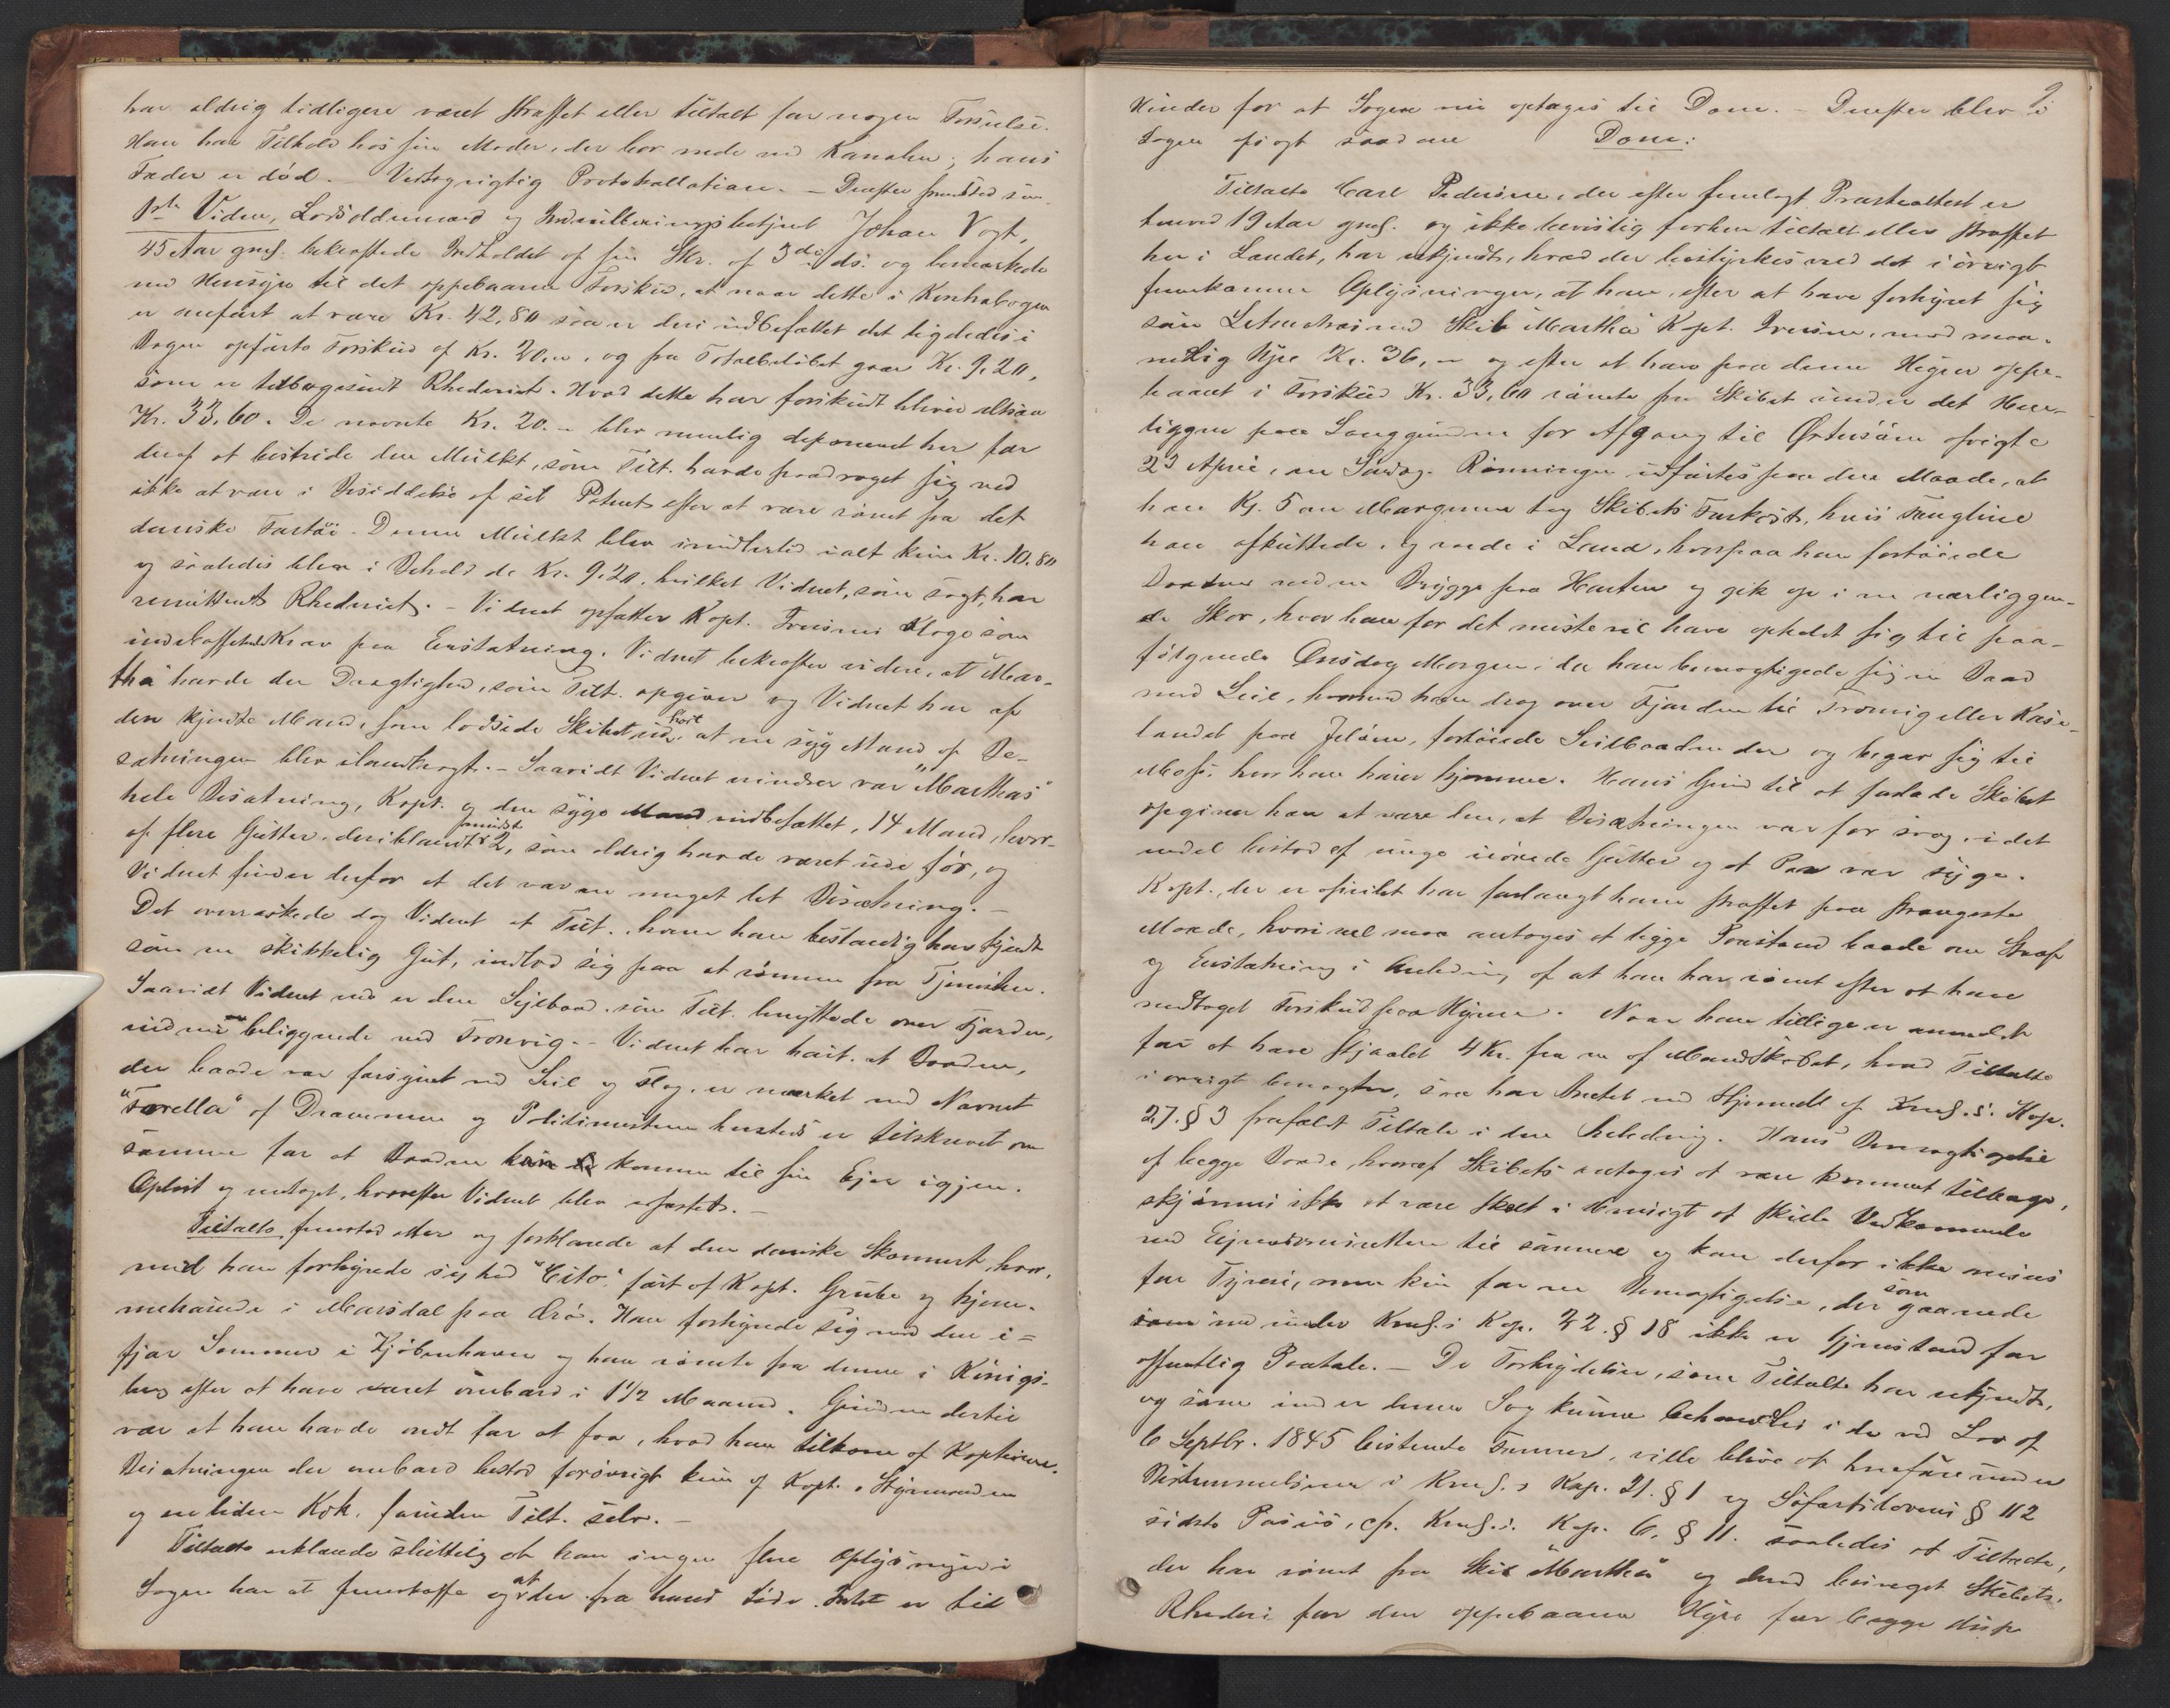 har aldrig tidligere været straffet eller tiltalt for nogen Forseelse.
Han har Tilhold hos sin Moder, der bor nede ved Kanalen; hans
Fader er død. – Vedtog rigtig Protokollation. – Derefter fremstod som
1ste Vidne, Lodsoldermand og Indrulleringsbetjent Johan Vogt,
45 Aar gml. bekræftede Indholdet af sin Skr. af 3die ds. og bemærkede
med Hensyn til det oppebaarne Forskud, at naar dette i Kontrabogen
er anført at være Kr. 42,80 saa er deri indbefattet det ligeledes i
Bogen opførte Forskud af Kr. 20,00, og fra Totalbeløbet gaar Kr. 9,20,
som er tilbagesendt Rhederiet. Hvad dette har forskudt bliver altsaa
Kr. 33,60. De nævnte Kr. 20.– blev nemlig deponeret her for
deraf at bestride den Mulkt, som Tilt. havde paadraget sig ved
ikke at være i Besiddelse af sit Patent efter at være rømt fra det
danske Fartøi. Denne Mulkt blev imidlertid ialt kun Kr. 10.80
og saaledes blev i Behold de Kr. 9.20, hvilket Vidnet, som sagt, har
remitteret Rhederiet. – Vidnet opfatter Kapt. Iversens Klage som
indebefattende Krav paa Erstatning. Vidnet bekræfter videre, at "Mar-
tha" havde den Drægtighed, som Tilt. opgiver og Vidnet har af
den kjendte Mand, som lodsede Skibet ud, hørt at en syg Mand af Be-
sætningen blev ilandbragt. – Saavidt Vidnet mindes var "Marthas"
hele Besætning, Kapt. og den syge Mand indbefattet, 14 Mand, hvor-
af flere Gutter, deriblandt mindst 2, som aldrig havde været ude før, og
Vidnet finder derfor at det var en meget let Besætning. –
Det overraskede dog Vidnet at Tilt. hvem han bestandig har kjendt
som en skikkelig Gut, indlod sig paa at rømme fra Tjenesten.
Saavidt Vidnet ved er den Sejlbaad, som Tilt. benyttede over Fjorden,
endnu beliggende ved Tronvig. – Vidnet har hørt, at Baaden,
der baade var forsynet med Seil og Flag, er mærket med Navnet
"Farella" af Drammen og Politimesteren hersteds er tilskrevet om
samme for at Baaden kan komme til sin Ejer igjen.
Oplæst og vedtaget, hvorefter Vidnet blev afstedt. –
Tiltalte, fremstod atter og forklarede at den danske Skonnert, hvor-
med han forhyrede sig hed "Cito" ført af Kapt. Grube og hjem-
mehørende i Marsdal paa Ærø. Han forhyrede sig med den i-
fjor Sommer i Kjøbenhavn og han rømte fra denne i Königs-
berg efter at have været ombord i 1½ Maaned. Grunden dertil
var at han havde ondt for at faa, hvad han tilkom af Kapteinen.
Besætningen der ombord bestod forøvrigt kun af Kapt., Styrmanden
og en liden Kok, foruden Tilt. selv. –
Tiltalte erklærede sluttelig at han ingen flere Oplysninger i
Sagen har at fremskaffe og at der fra hans Side Intet er til
2
Hinder for at Sagen nu optages til Dom. – Derefter blev i
Sagen sagt saadan Dom:
Tiltalte Carl Pedersen, der efter fremlagt Præsteattest er
henved 19 Aar gml. og ikke bevislig forhen tiltalt eller straffet
her i Landet, har erkjendt, hvad der bestyrkes ved det i øvrigt
fremkomne Oplysninger, at han, efter at have forhyret sig
som Letmatros med Skib "Martha" Kapt. Iversen, mod maa-
nedlig Hyre Kr. 36,– og efter at have paa denne Hyre oppe-
baaret i Forskud Kr. 33,60 rømte fra Skibet under det Hen-
liggen paa Langgrunden før Afgang til Østersøen afvigte
23 April, en Søndag. Rømningen udførtes paa den Maade, at
han Kl. 5 om Morgenen tog Skibets Farkost, hvis Fangline
han afkuttede, og roede i Land, hvorpaa han fortøiede
Baaden ved en Brygge paa Horten og gik op i en nærliggen-
de Skov, hvor han for det meste vil have opholdt sig til paa-
følgende Onsdag Morgen, da han bemægtigede sig en Baad
med Seil, hvormed han drog over Fjorden til Tronvig eller Kase-
landet paa Jeløen, fortøiede Seilbaaden der og begav sig til
Moss, hvor han hører hjemme. Hans Grund til at forlade Skibet
opgiver han at være den, at Besætningen var for svag, idet
endel bestod af unge uøvede Gutter og et Par var syge.
Kapt., der er afseilet har forlangt ham straffet paa strængeste
Maade, hvori vel maa antages at ligge Paastand baade om Straf
og Erstatning i Anledning af at han har rømt efter at have
modtaget Forskud paa Hyren. Naar han tillige er anmeldt
for at have stjaalet 4 Kr. fra en af Mandskabet, hvad Tiltalte
i øvrigt benægter, saa har Amtet med Hjemmel af Kriml.s. Kap.
27. § 3 frafaldt Tiltale i den Anledning. Hans Bemægtigelse
af begge Baade, hvoraf Skibets antages at være kommet tilbage,
skjønnes ikke at være skeet i Hensigt at skille Vedkommende
ved Eiendomsretten til samme og kan derfor ikke ansees
for Tyveri, men kun for en Bemægtigelse, der som gaaende
ind under Kriml.s Kap. 22. § 18 ikke er Gjenstand for
offentlig Paatale. – De Forbrydelser, som Tiltalte har erkjendt,
og som under denne Sag kunne behandles i de ved Lov af
6 Septbr. 1845 bestemte Former, ville blive at henføre under
Bestemmelserne i Kriml.s Kap. 21. § 1 og Søfartslovens § 112
sidste Passus, cfr. Kriml.s. Kap. 6. § 11. saaledes at Tiltalte,
der har rømt fra Skib "Martha" og derved besveget Skibets
Rhederi for den oppebaarne Hyre for begge disse